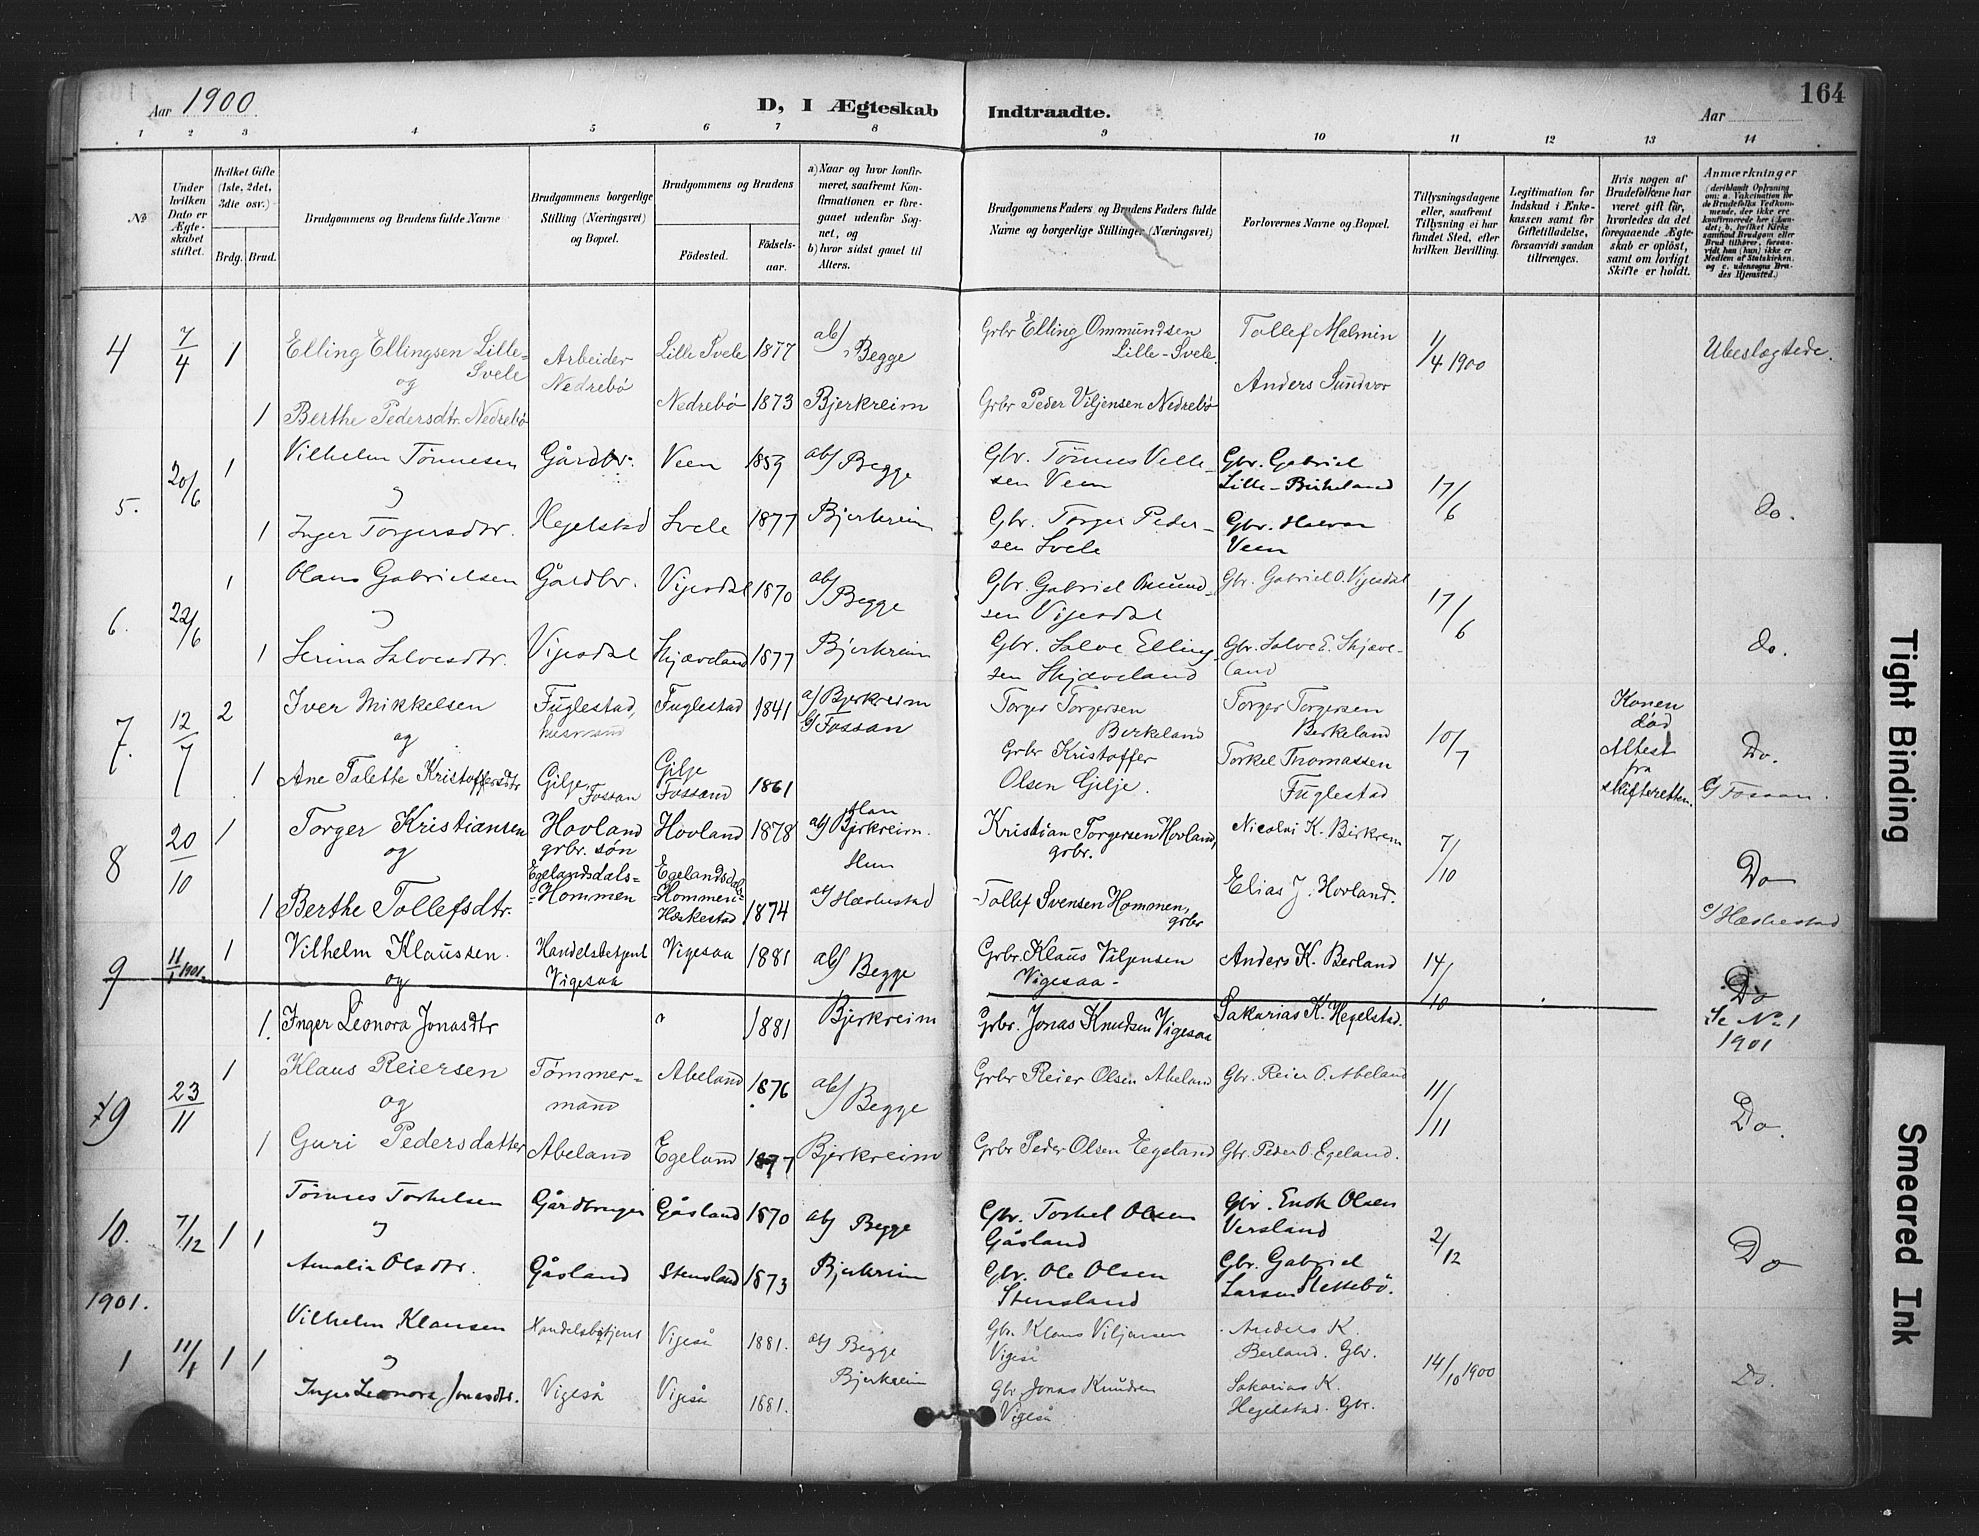 Aar 1900. D, I Ægteskab Indtraadte. Aar 164
1 2 3 4 5 6 7 8 9 10 11 12 13 14
No
Under hvilken Dato er Ægteskabet stiftet.
Hvilket Gifte (1ste, 2det, 3die osv.)
Brdg. Brud.
Brudgommens og Brudens fulde Navne
Brudgommens borgerlige Stilling (Næringsvei) og Bopæl.
Brudgommens og Brudens
Fødested. Fødselsaar.
a) Naar og hvor konfirmeret, saafremt Konfirmationen er foregaaet udenfor Sognet, og
b) hvor sidst gaaet til Alters.
Brudgommens Faders og Brudens Faders fulde Navne og borgerlige Stillinger (Næringsvei)
Forlovernes Navne og Bopæl.
Tillysningsdagene eller, saafremt Tillysning ei har fundet Sted, efter hvilken Bevilling.
Legitimation for Indskud i Enkekassen samt for Giftetilladelse, forsaavidt saadan tiltrænges.
Hvis nogen af Brudefolkene har været gift før, hvorledes da det foregaaende Ægteskab er opløst, samt om lovligt Skifte er holdt.
Anmærkninger
(deriblandt Oplysning om: a. Vakcination for de Brudefolks Vedkommende, der ikke ere konfirmerede her i Landet; b. hvilket Kirkesamfund Brudgom eller Brud tilhører, forsaavidt han (hun) ikke er Medlem af Statskirken, og c. udensogns Brudes Hjemsted.)
4 7/4 1 Elling Ellingsen Lille-Svele Arbeider Nedrebö Lille Svele 1877 ab/ Begge Grbr Elling Ommundsen Lille-Svele. Tollef Malmin 1/4 1900 Ubeslægtede.
og
1 Berthe Pedersdtr. Nedrebö Nedrebö 1873 Bjerkreim Grbr Peder Viljensen Nedrebö Anders Sundvor
5. 20/6 1 Vilhelm Tönnesen Gårdbr. Veen 1859 ab/ Begge Gbr. Tönnes Vellesen Veen Gbr. Gabriel Lille-Birkeland 17/6 do.
1 Inger Torgersdtr. Hegelstad Svele 1877 Bjerkreim Gbr. Torger Pedersen Svele Gbr. Halvor Veen
6. 22/6 1 Olaus Gabrielsen Gårdbr. Vigesdal 1870 ab/ Begge Gbr. Gabriel Omundsen Vigesdal Gbr. Gabriel O. Vigesdal 17/6 do.
1 Serina Salvesdtr. Vigesdal Skjæveland 1877 Bjerkreim Gbr. Salve Ellingsen Skjæveland Gbr. Salve E. Skjæveland
7. 12/7 2 Iver Mikkelsen Fuglestad, husmand Fuglestad 1841 a/ Bjerkreim b/ Fossan Torger Torgersen Birkeland Torger Torgersen Berkeland 10/7 Konen död Attest fra skifteretten. Do.
og
1 Ane Talette Kristoffersdtr Gilje, Fossan Gilje Fossand 1861 Grbr Kristoffer Olsen Gilje. Torkel Thomassen Fuglestad c/ Fossan.
8 20/10 1 Torger Kristiansen Hovland grbr. søn Hovland 1878 Han ab/ Bjerkreim. Kristian Torgersen Hovland, grbr. Nicolai K. Birkrem 7/10 Do
og
1 Berthe Tollefsdtr. Egelandsdals-Hommen Egelandsdals-Hommen-Hæskestad 1874 Hun ab/ Hæskestad Tollef Svensen Hommen, grbr Elias J. Hovland. c/ Hæskestad
9 11/1 1901. 1 Vilhelm Klaussen. Handelsbetjent Vigesaa Vigesaa 1881 ab/ Begge Grbr. Klaus Viljensen Vigesaa. Anders K. Berland 14/10 Do
og
1. Inger Leonora Jonasdtr " 1881 Bjerkreim Grbr. Jonas Knudsen Vigesaa Sakarias K. Hegelstad. Se No 1 1901
9 23/11 1 Klaus Reiersen Tömmermand Abeland 1876 ab/ Begge Grbr Reier Olsen Abeland Gbr. Reier O. Abeland 11/11 Do.
og
1 Guri Pedersdatter Abeland Egeland 1877 Bjerkreim Grbr Peder Olsen Egeland Gbr. Peder O. Egeland.
10. 7/12 1 1 Tönnes Torkelsen Gårdbruger Gåsland 1870 ab/ Begge Gbr. Torkel Olsen Gåsland Gbr. Enok Olsen Versland 2/12 Do
Amalia Olsdtr. Gåsland Stensland 1873 Bjerkreim Gbr. Ole Olsen Stensland Gbr. Gabriel Larsen Slettebö.
1901.
1 11/1 1 1 Vilhelm Klausen Handelsbetjent Vigeså 1881. ab/ Begge Gbr. Klaus Viljansen Vigeså Anders K. Berland. Gbr. 14/10 1900 Do.
Inger Leonora Jonasdtr. Vigeså Vigeså 1881. Bjerkreim Gbr. Jonas Knudsen Vigeså Sakarias K. Hegelstad. Gbr.
Tight Binding
Smeared Ink